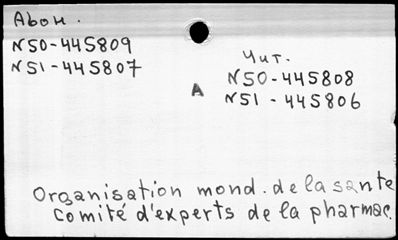 Абон.
N50-445809
N51-445807
Чит.
N50-445808
N51-445806
A
Organisation mond. de la sante
Comité d'experts de la pharmac.